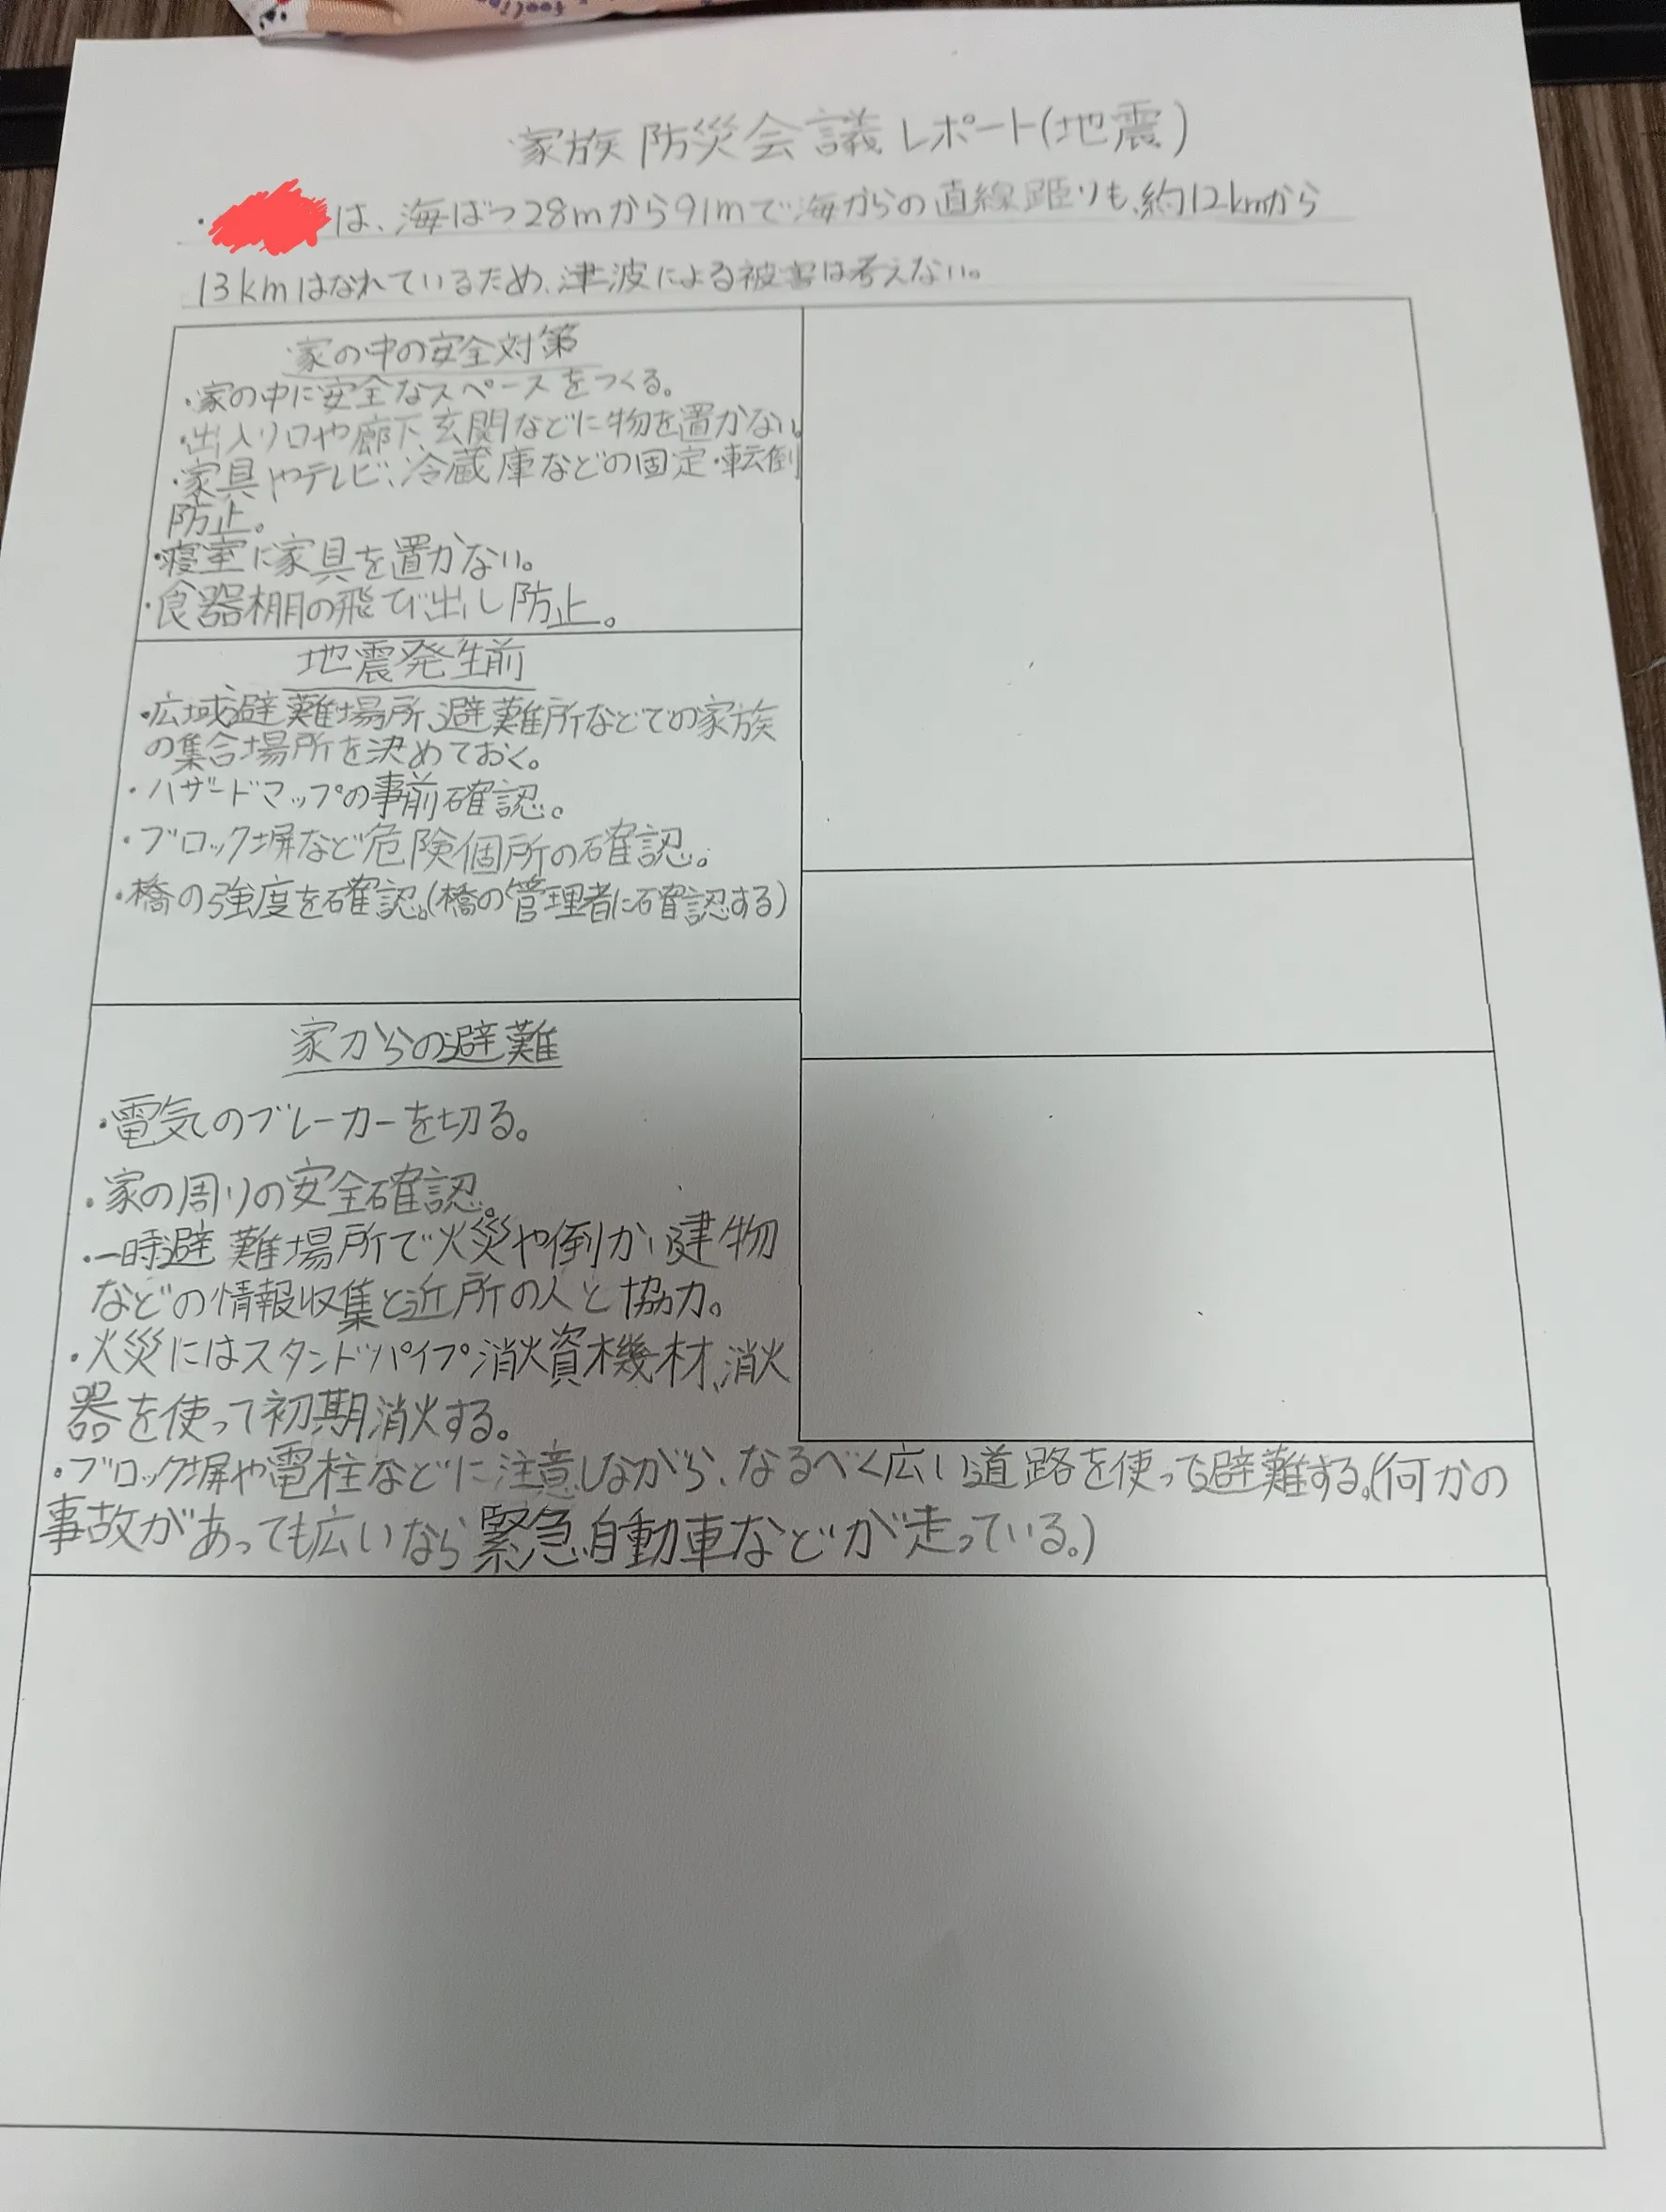 家族防災会議レポート(地震)
・は、海ばつ28mから91mで海からの直線距りも、約12kmから
13kmはなれているため、津波による被害は考えない。
家の中の安全対策
・家の中に安全なスペースをつくる。
・出入り口や廊下、玄関などに物を置かない。
・家具やテレビ、冷蔵庫などの固定・転倒
防止。
・寝室に家具を置かない。
・食器棚の飛び出し防止。
地震発生前
・広域避難場所、避難所などでの家族
の集合場所を決めておく。
・ハザードマップの事前確認。
・ブロック塀など危険個所の確認。
・橋の強度を確認。(橋の管理者に確認する)
家からの避難
・電気のブレーカーを切る。
・家の周りの安全確認。
・一時避難場所で火災や倒かい建物
などの情報収集と近所の人と協力。
・火災にはスタンドパイプ消火資機材、消火
器を使って初期消火する。
・ブロック塀や電柱などに注意しながら、なるべく広い道路を使って避難する。(何かの
事故があっても広いなら緊急自動車などが走っている。)